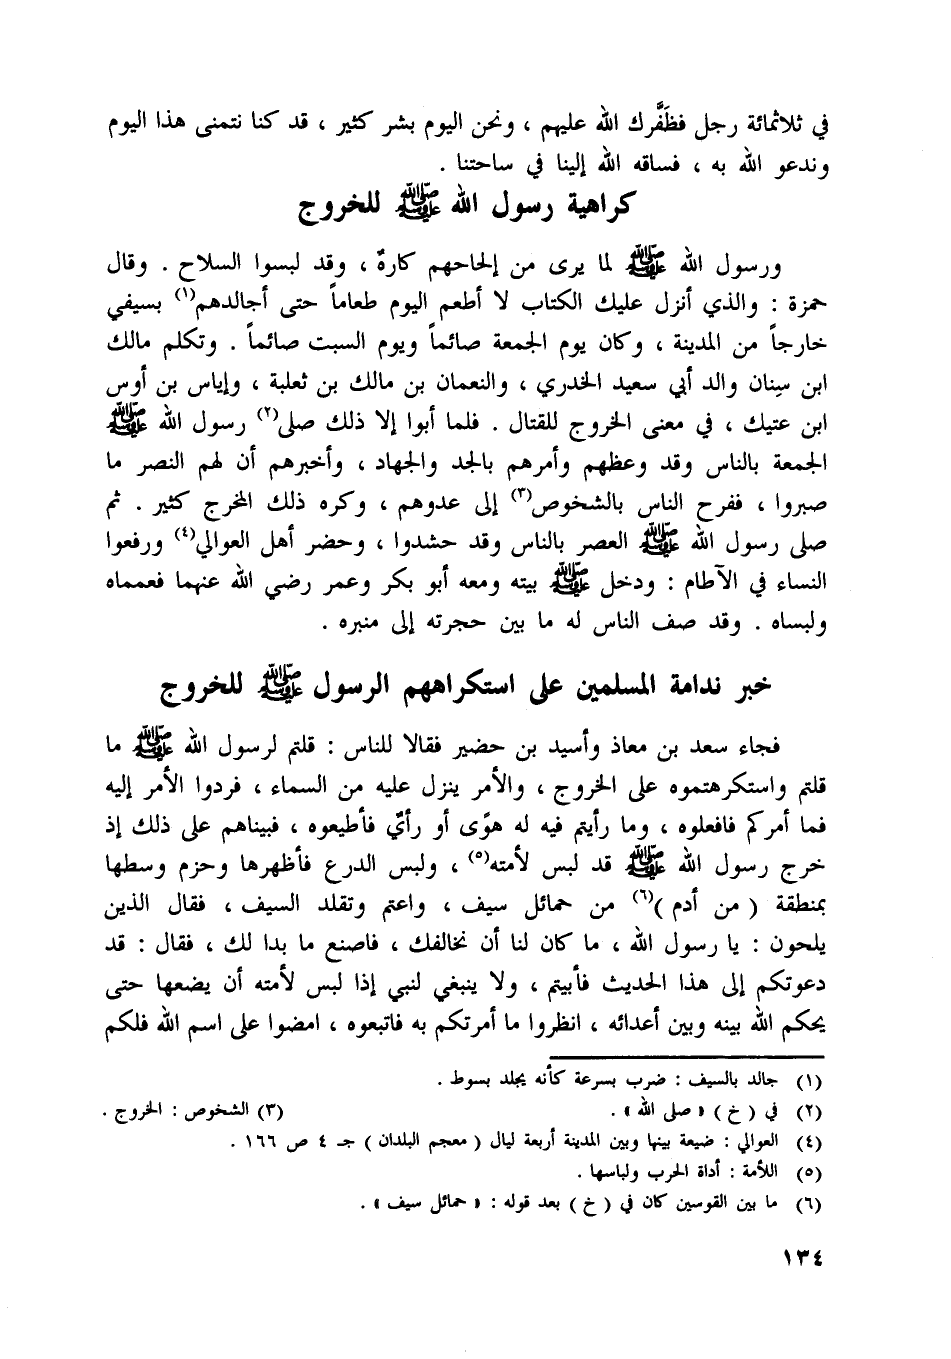 في ثلاثمائة رجل فظَفَّرك الله عليهم ، ونحن اليوم بشر كثير ، قد كنا نتمنى هذا اليوم
وندعو الله به ، فساقه الله إلينا في ساحتنا .
كراهية رسول الله ﷺ للخروج
ورسول الله ﷺ لما يرى من إلحاحهم كارهٌ ، وقد لبسوا السلاح . وقال
حمزة : والذي أنزل عليك الكتاب لا أطعم اليوم طعاماً حتى أجالدهم(١) بسيفي
خارجاً من المدينة ، وكان يوم الجمعة صائماً ويوم السبت صائماً . وتكلم مالك
ابن سِنان والد أبي سعيد الخدري ، والنعمان بن مالك بن ثعلبة ، وإياس بن أوس
ابن عتيك ، في معنى الخروج للقتال . فلما أبوا إلا ذلك صلى(٢) رسول الله ﷺ
الجمعة بالناس وقد وعظهم وأمرهم بالجد والجهاد ، وأخبرهم أن لهم النصر ما
صبروا ، ففرح الناس بالشخوص(٣) إلى عدوهم ، وكره ذلك المخرج كثير . ثم
صلى رسول الله ﷺ العصر بالناس وقد حشدوا ، وحضر أهل العوالي(٤) ورفعوا
النساء في الآطام : ودخل ﷺ بيته ومعه أبو بكر وعمر رضي الله عنهما فعمماه
ولبساه . وقد صف الناس له ما بين حجرته إلى منبره .
خبر ندامة المسلمين على استكراههم الرسول ﷺ للخروج
فجاء سعد بن معاذ وأسيد بن حضير فقالا للناس : قلتم لرسول الله ﷺ ما
قلتم واستكرهتموه على الخروج ، والأمر ينزل عليه من السماء ، فردوا الأمر إليه
فما أمركم فافعلوه ، وما رأيتم فيه له هوًى أو رأيٌ فأطيعوه ، فبيناهم على ذلك إذ
خرج رسول الله ﷺ قد لبس لأمته(٥) ، ولبس الدرع فأظهرها وحزم وسطها
بمنطقة ( من أدم )(٦) من حمائل سيف ، واعتم وتقلد السيف ، فقال الذين
يلحون : يا رسول الله ، ما كان لنا أن نخالفك ، فاصنع ما بدا لك ، فقال : قد
دعوتكم إلى هذا الحديث فأبيتم ، ولا ينبغي لنبي إذا لبس لأمته أن يضعها حتى
يحكم الله بينه وبين أعدائه ، انظروا ما أمرتكم به فاتبعوه ، امضوا على اسم الله فلكم
(١) جالد بالسيف : ضرب بسرعة كأنه يجلد بسوط .
(٢) في ( خ ) « صلى الله » . (٣) الشخوص : الخروج .
(٤) العوالي : ضيعة بينها وبين المدينة أربعة ليال ( معجم البلدان ) جـ ٤ ص ١٦٦ .
(٥) اللأمة : أداة الحرب ولباسها .
(٦) ما بين القوسين كان في ( خ ) بعد قوله : « حمائل سيف » .
١٣٤